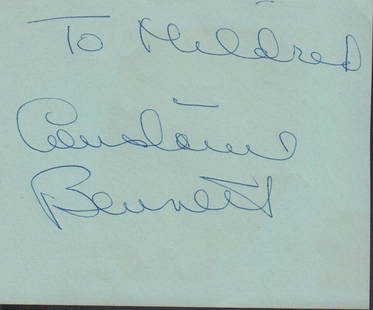 To Mildred
Constance
Bennett